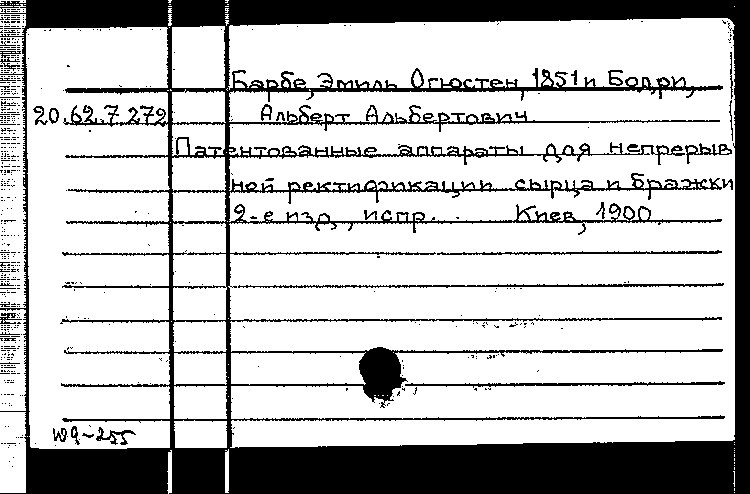 Барбе, Эмиль Огюстен, 1851 и Бодри,
20.62.7.272 Альберт Альбертович.
Патентованные аппараты для непрерыв
ной ректификации сырца и бражки
2-е изд., испр. Киев, 1900.
W9-255